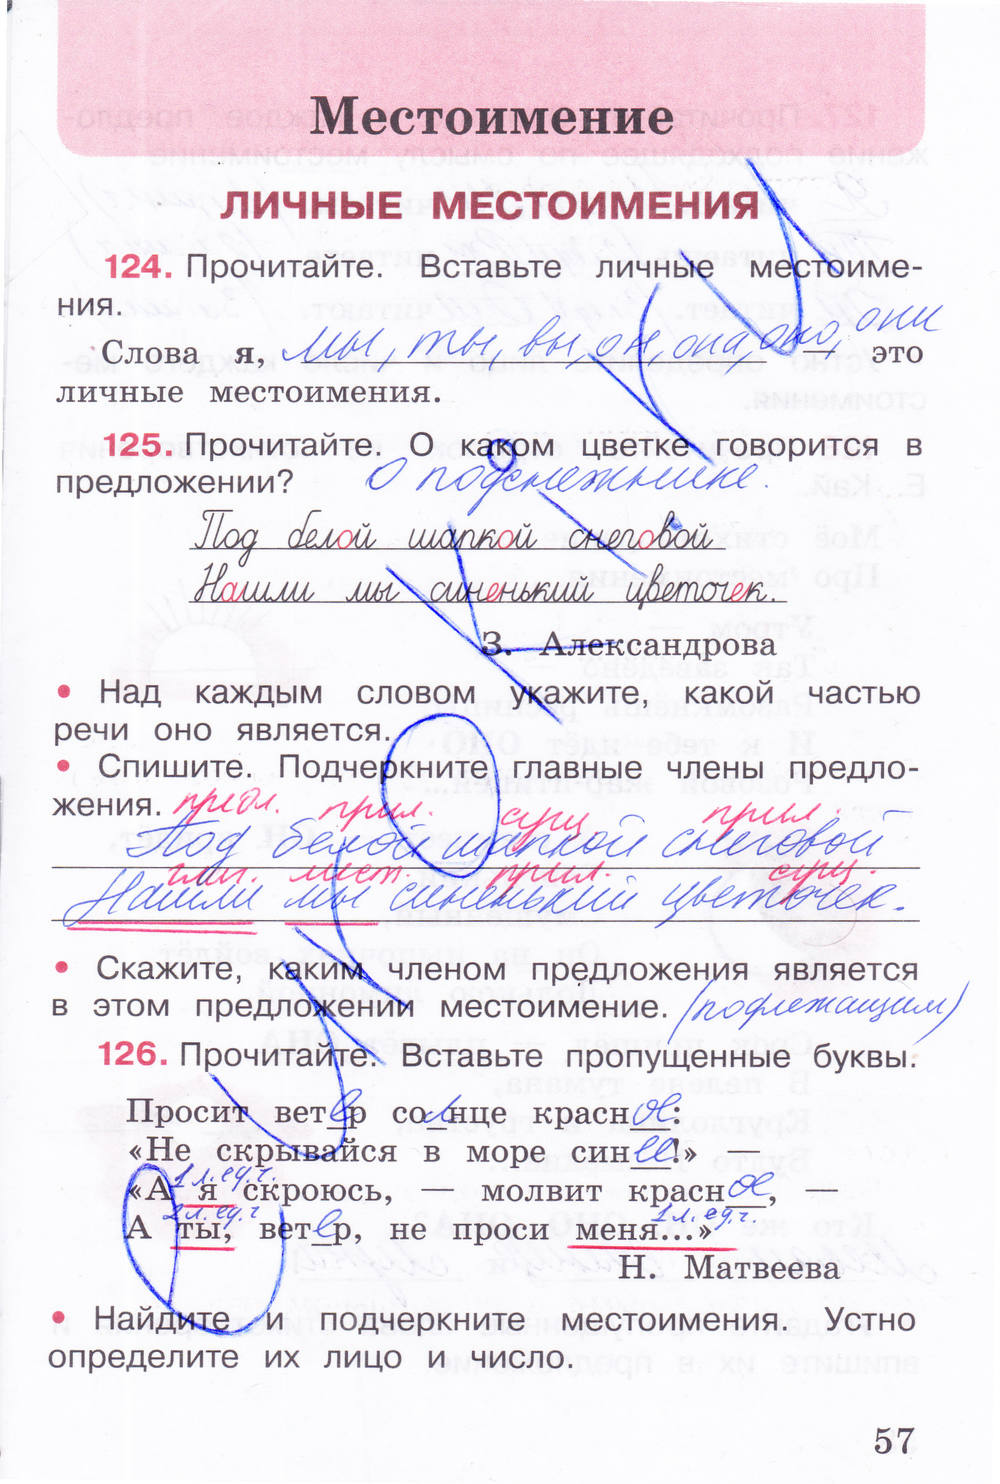 Местоимение
ЛИЧНЫЕ МЕСТОИМЕНИЯ
124. Прочитайте. Вставьте личные местоиме-
ния.
Слова я, мы, ты, вы, он, она, оно, они это
личные местоимения.
125. Прочитайте. О каком цветке говорится в
предложении? О подснежнике.
Под белой шапкой снеговой
Нашли мы синенький цветочек.
З. Александрова
• Над каждым словом укажите, какой частью
речи оно является.
• Спишите. Подчеркните главные члены предло-
жения. предл. прил. сущ. прил.
Под белой шапкой снеговой
глаг. мест. прил. сущ.
Нашли мы синенький цветочек.
• Скажите, каким членом предложения является
в этом предложении местоимение. (подлежащим)
126. Прочитайте. Вставьте пропущенные буквы.
Просит ветер солнце красное:
«Не скрывайся в море синее!» —
1 л. ед. ч.
«А я скроюсь, — молвит красное, —
2 л. ед. ч. 1 л. ед. ч.
А ты, ветер, не проси меня...»
Н. Матвеева
• Найдите и подчеркните местоимения. Устно
определите их лицо и число.
57